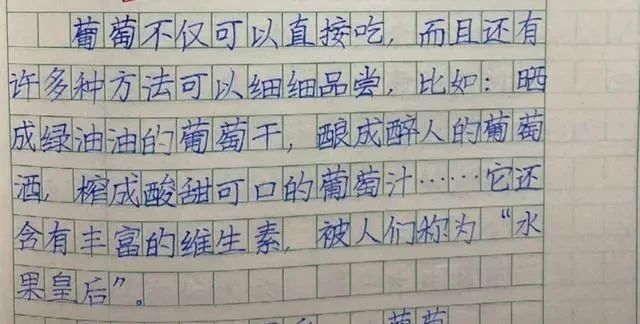 葡萄不仅可以直接吃，而且还有
许多种方法可以细细品尝，比如：晒
成绿油油的葡萄干，酿成醉人的葡萄
酒，榨成酸甜可口的葡萄汁……它还
含有丰富的维生素，被人们称为“水
果皇后”。
葡萄